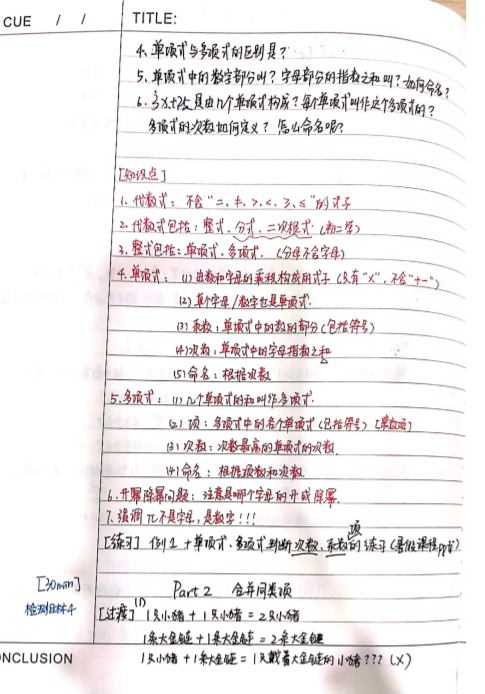 CUE / /
TITLE:
4. 单项式与多项式的区别是?
5. 单项式中的数字部分叫?字母部分的指数之和叫?如何命名?
6. 是由几个单项式构成?每个单项式叫作这个多项式的?
多项式的次数如何定义?怎么命名呢?
[知识点]
1. 代数式:不含"=、≠、>、<、≥、≤"的式子
2. 代数式包括:整式、分式、二次根式(初二学)
3. 整式包括:单项式、多项式.(分母不含字母)
4. 单项式:(1)由数和字母的乘积构成的式子(只有"×",不含"+-")
(2)单个字母/数字也是单项式.
(3)系数:单项式中的数的部分(包括符号)
(4)次数:单项式中的字母指数之和
(5)命名:根据次数
5. 多项式:(1)几个单项式的和叫作多项式.
(2)项:多项式中的各个单项式(包括符号)[常数项]
(3)次数:次数最高的单项式的次数
(4)命名:根据项数和次数.
6. 升幂降幂问题:注意是哪个字母的升或降幂.
7. 强调π不是字母,是数字!!!
[练习] 例1 + 单项式、多项式判断次数、系数、项的练习(暑假课程ppt)
[30min]
Part 2 合并同类项
检测目标4
[过渡](1) 1只小猪 + 1只小猪 = 2只小猪
1条大金链 + 1条大金链 = 2条大金链
1只小猪 + 1条大金链 = 1只戴着大金链的小猪???(×)
NCLUSION